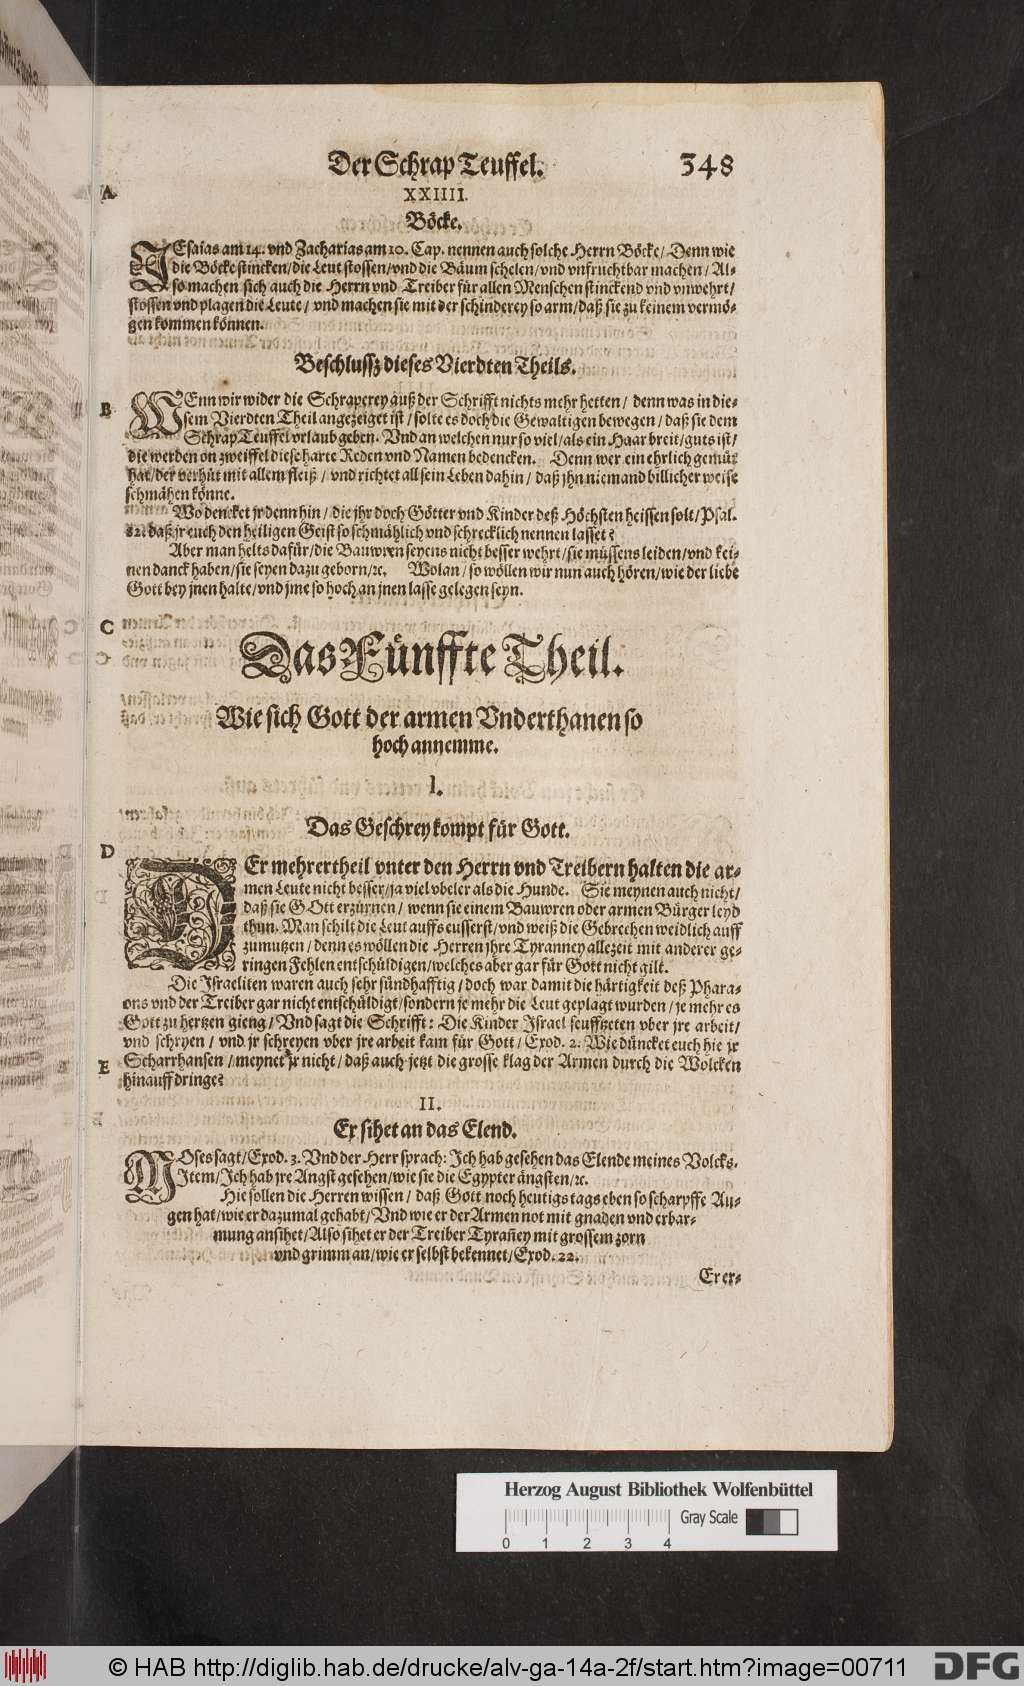 Der Schrap Teuffel. 348
XXIIII.
Böcke.
A
JEsaias am 14. vnd Zacharias am 10. Cap. nennen auch solche Herrn Böcke/ Denn wie
die Böcke stincken/die Leut stossen/vnd die Bäum schelen/vnd vnfruchtbar machen/ Al-
so machen sich auch die Herrn vnd Treiber für allen Menschen stinckend vnd vnwehrt/
stossen vnd plagen die Leute/ vnd machen sie mit der schinderey so arm/daß sie zu keinem vermö-
gen kommen können.
Beschlussz dieses Vierdten Theils.
B
WEnn wir wider die Schraperey auß der Schrifft nichts mehr hetten/ denn was in die-
sem Vierdten Theil angezeiget ist/ solte es doch die Gewaltigen bewegen/ daß sie dem
Schrap Teuffel vrlaub geben. Vnd an welchen nur so viel/als ein Haar breit/guts ist/
die werden on zweiffel diese harte Reden vnd Namen bedencken. Denn wer ein ehrlich gemüt
hat/der verhüt mit allem fleiß/ vnd richtet all sein Leben dahin/ daß jhn niemand billicher weise
schmähen könne.
Wo dencket jr denn hin/ die jhr doch Götter vnd Kinder deß Höchsten heissen solt/Psal.
82. daß jr euch den heiligen Geist so schmählich vnd schrecklich nennen lasset?
Aber man helts dafür/die Bauwren seyens nicht besser wehrt/sie müssens leiden/vnd kei-
nen danck haben/sie seyen dazu geborn/ꝛc. Wolan/ so wöllen wir nun auch hören/wie der liebe
Gott bey jnen halte/vnd jme so hoch an jnen lasse gelegen seyn.
C
Das Fünffte Theil.
Wie sich Gott der armen Vnderthanen so
hoch annemme.
I.
Das Geschrey kompt für Gott.
D
DEr mehrertheil vnter den Herrn vnd Treibern halten die ar-
men Leute nicht besser/ja viel vbeler als die Hunde. Sie meynen auch nicht/
daß sie GOtt erzürnen/ wenn sie einem Bauwren oder armen Bürger leyd
thun. Man schilt die Leut auffs eusserst/vnd weiß die Gebrechen weidlich auff
zumutzen/ denn es wöllen die Herren jhre Tyranney allezeit mit anderer ge-
ringen Fehlen entschüldigen/welches aber gar für Gott nicht gilt.
Die Israeliten waren auch sehr sündhafftig/ doch war damit die härtigkeit deß Phara-
ons vnd der Treiber gar nicht entschüldigt/sondern je mehr die Leut geplagt wurden/ je mehr es
Gott zu hertzen gieng/ Vnd sagt die Schrifft: Die Kinder Israel seufftzeten vber jre arbeit/
vnd schryen/ vnd jr schreyen vber jre arbeit kam für Gott/ Exod. 2. Wie düncket euch hie jr
E
Scharrhansen/ meynet jr nicht/ daß auch jetzt die grosse klag der Armen durch die Wolcken
hinauff dringe?
II.
Er sihet an das Elend.
MOses sagt/Exod. 3. Vnd der Herr sprach: Ich hab gesehen das Elende meines Volcks.
Item/Ich hab jre Angst gesehen/wie sie die Egypter ängsten/ꝛc.
Hie sollen die Herren wissen/ daß Gott noch heutigs tags eben so scharpffe Au-
gen hat/wie er dazumal gehabt/Vnd wie er der Armen not mit gnaden vnd erbar-
mung ansihet/Also sihet er der Treiber Tyrañey mit grossem zorn
vnd grimm an/wie er selbst bekennet/Exod. 22.
Er er-
Herzog August Bibliothek Wolfenbüttel
Gray Scale
0 1 2 3 4
© HAB http://diglib.hab.de/drucke/alv-ga-14a-2f/start.htm?image=00711
DFG